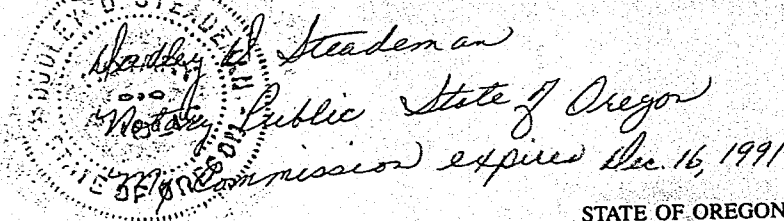 DUDLEY D STEADEMAN
Dudley D Steademan
Notary Public State of Oregon
My Commission expires Dec. 16, 1991
STATE OF OREGON